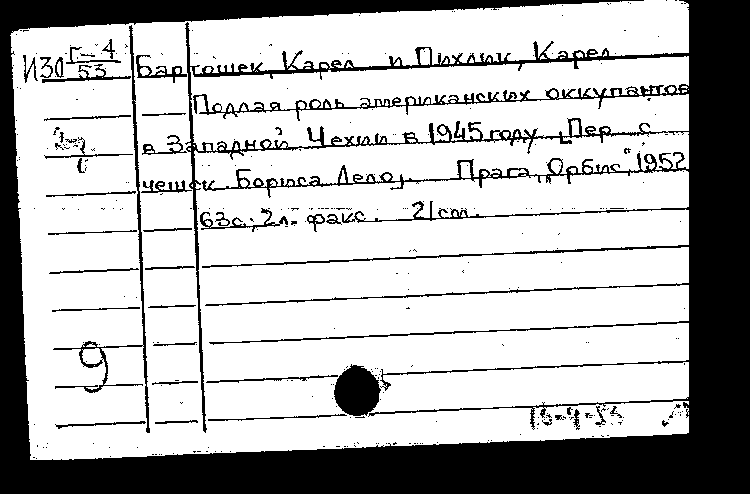 И30 Г-4/53 Бартошек, Карел и Пихлик, Карел
Подлая роль американских оккупантов
в Западной Чехии в 1945 году. [Пер. с
чешск. Бориса Лепо]. Прага, "Орбис", 1952
63с.; 2л. факс. 21 cm.
9